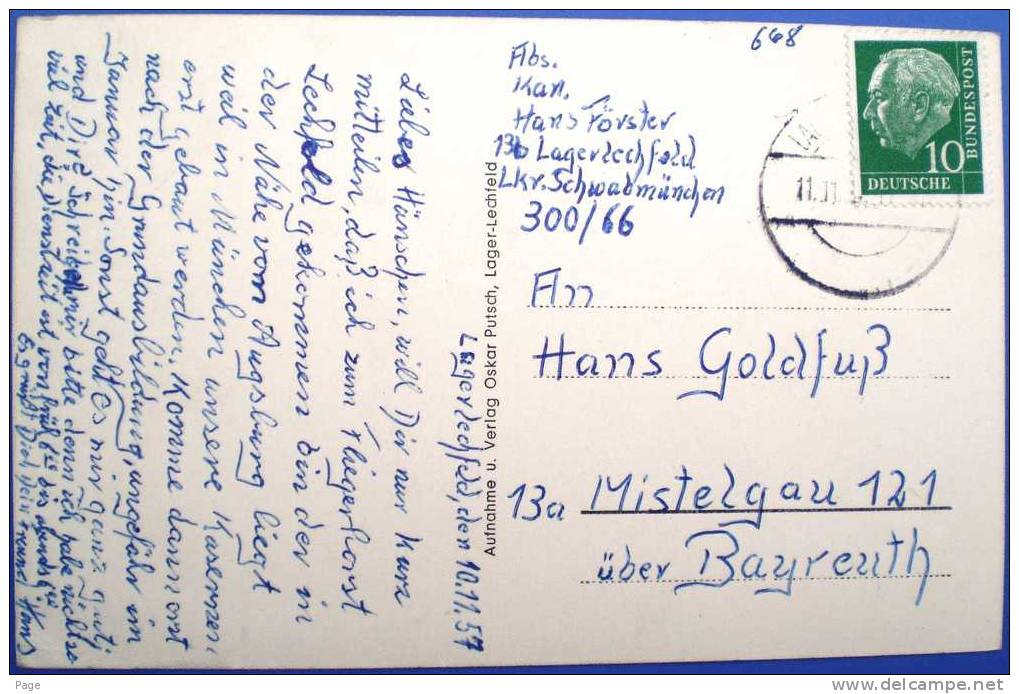 Lagerlechfeld, den 10.11.57
Liebes Hänschen, will Dir nur kurz
mitteilen, daß ich zum Fliegerhorst
Lechfeld gekommen bin der in
der Nähe vom Augsburg liegt
weil in München unsere Kasernen
erst gebaut werden. Komme dann ort
nach der Grundausbildung, ungefähr im
Januar hin. Sonst geht es mir ganz gut,
und Dir? Schreibe mir bitte denn ich habe nicht so
viel Zeit, die Dienstzeit ist von früh bis
Es grüßt Dich Dein Freund Hans
Aufnahme u. Verlag Oskar Putsch, Lager-Lechfeld
668
Abs.
Kan.
Hans Förster
13b Lagerlechfeld
Lkr. Schwabmünchen
300/66
10
DEUTSCHE
BUNDESPOST
11.11.
An
Hans Goldfuß
13a Mistelgau 121
über Bayreuth
Page
www.delcampe.net